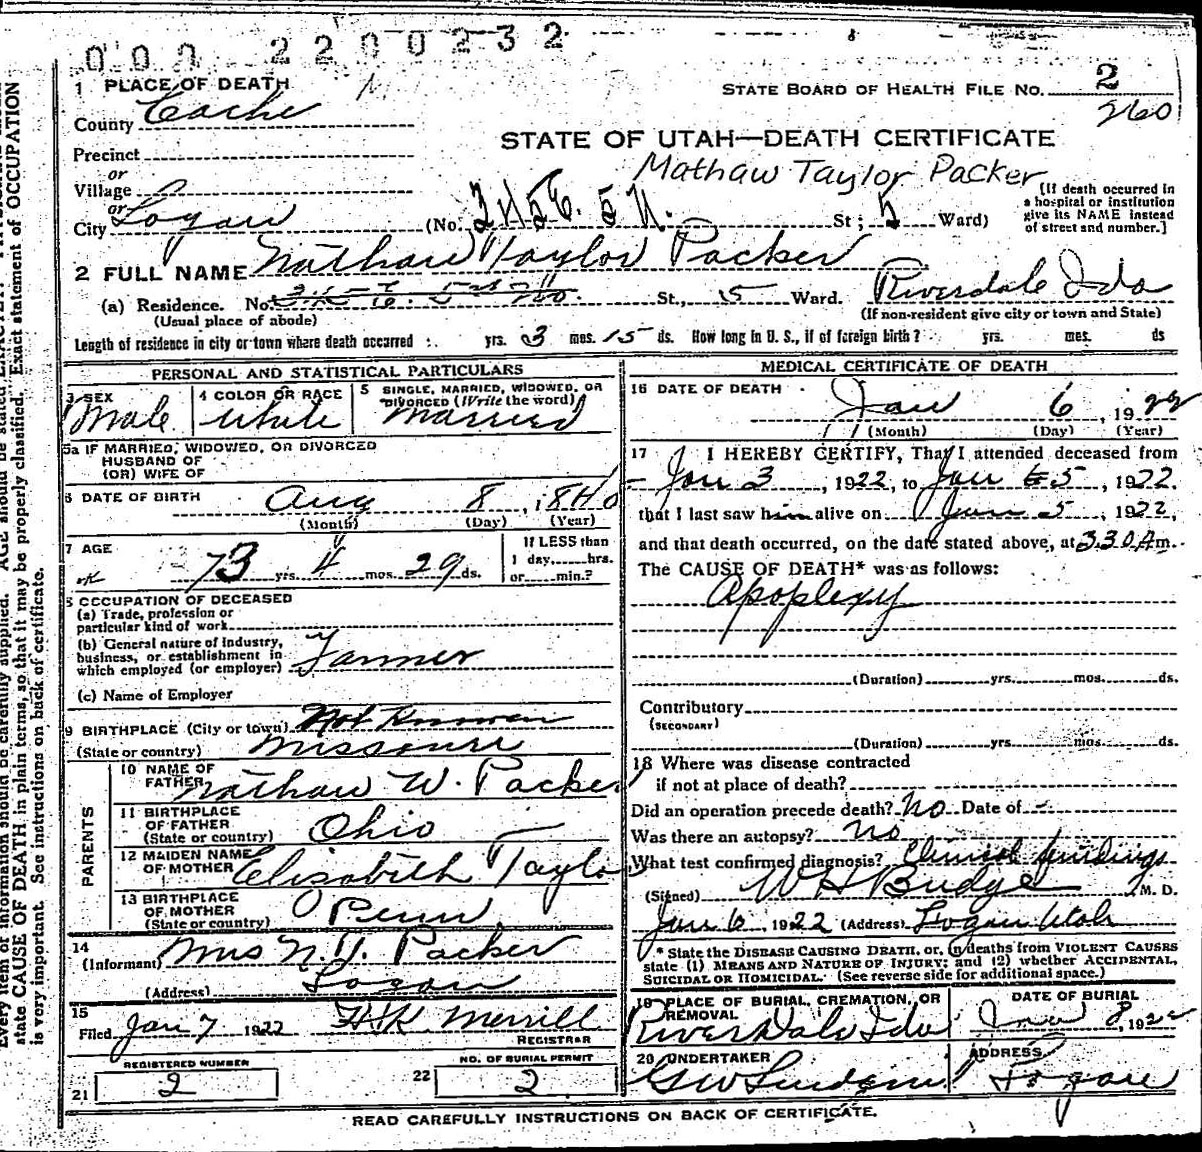 000 2200232
1 PLACE OF DEATH
STATE BOARD OF HEALTH FILE NO. 2
260
County Cache
STATE OF UTAH—DEATH CERTIFICATE
Precinct
or
Mathaw Taylor Packer
Village
or
City Logan (No. St; 5 Ward)
[If death occurred in
a hospital or institution
give its NAME instead
of street and number.]
2 FULL NAME Nathan Taylor Packer
(a) Residence. No. St., 5 Ward. Riverdale Ida
(Usual place of abode) (If non-resident give city or town and State)
Length of residence in city or town where death occurred yrs. 3 mos. 15 ds. How long in U. S., if of foreign birth? yrs. mos. ds
PERSONAL AND STATISTICAL PARTICULARS
3 SEX Male
4 COLOR OR RACE White
5 SINGLE, MARRIED, WIDOWED, OR
DIVORCED (Write the word) Married
5a IF MARRIED, WIDOWED, OR DIVORCED
HUSBAND OF
(OR) WIFE OF
6 DATE OF BIRTH Aug 8, 1840
(Month) (Day) (Year)
7 AGE 73 yrs. 4 mos. 29 ds.
If LESS than
1 day......hrs.
or......min.?
8 OCCUPATION OF DECEASED
(a) Trade, profession or
particular kind of work
(b) General nature of industry,
business, or establishment in
which employed (or employer) Farmer
(c) Name of Employer
9 BIRTHPLACE (City or town) Not Known
(State or country) Missouri
PARENTS
10 NAME OF
FATHER Nathan W. Packer
11 BIRTHPLACE
OF FATHER
(State or country) Ohio
12 MAIDEN NAME
OF MOTHER Elisabeth Taylor
13 BIRTHPLACE
OF MOTHER
(State or country) Penn
14
(Informant) Mrs N.T. Packer
(Address) Logan
15
Filed Jan 7 1922 H.K. Merrill
REGISTRAR
REGISTERED NUMBER
21 2
NO. OF BURIAL PERMIT
22 2
MEDICAL CERTIFICATE OF DEATH
16 DATE OF DEATH Jan 6, 1922
(Month) (Day) (Year)
17 I HEREBY CERTIFY, That I attended deceased from
Jan 3, 1922, to Jan 5, 1922.
that I last saw him alive on Jan 5, 1922,
and that death occurred, on the date stated above, at 3.30 A m.
The CAUSE OF DEATH* was as follows:
Apoplexy
(Duration) yrs. mos. ds.
Contributory
(SECONDARY)
(Duration) yrs. mos. ds.
18 Where was disease contracted
if not at place of death?
Did an operation precede death? No Date of -
Was there an autopsy? no
What test confirmed diagnosis? Clinical findings
(Signed) W H Budge M. D.
Jan 6, 1922 (Address) Logan Utah
* State the DISEASE CAUSING DEATH, or, in deaths from VIOLENT CAUSES
state (1) MEANS AND NATURE OF INJURY; and (2) whether ACCIDENTAL,
SUICIDAL OR HOMICIDAL. (See reverse side for additional space.)
19 PLACE OF BURIAL, CREMATION, OR
REMOVAL
RiverDale Ida
DATE OF BURIAL
Jan 8, 1922
20 UNDERTAKER
ADDRESS
Logan
READ CAREFULLY INSTRUCTIONS ON BACK OF CERTIFICATE.
state CAUSE OF DEATH in plain terms, so that it may be properly classified. Exact statement of OCCUPATION
is very important. See instructions on back of certificate.